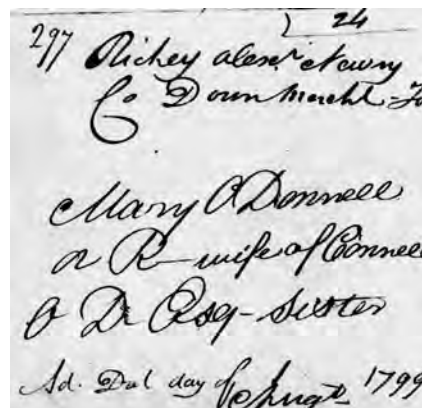 24
297 Richey alexr Newry
Co Down Mercht
Mary O Donnell
or R— wife of Connell
O D Esq- Sister
Ad. Dat day of Augt 1799